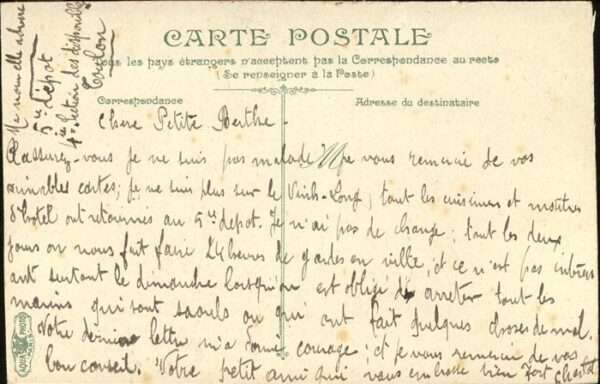 Ma nouvelle adresse
5e dépôt
4e Section des disponibles
Toulon
CARTE POSTALE
Tous les pays étrangers n'acceptent pas la Correspondance au recto
(Se renseigner à la Poste)
Correspondance
Adresse du destinataire
Chère Petite Berthe -
Rassurez-vous je ne suis pas malade je vous remercie de vos
aimables cartes; je ne suis plus sur le Vinh-Long, tout les cuisiniers et maitres
d'hotel ont retournés au 5e depot. Je n'ai pas de change; tout les deux
jours on nous fait faire 24 heures de gardes en ville, et ce n'est pas
surtout le dimanche lorsqu'on est obligé d'arreter tout les
marins qui sont saouls ou qui ont fait quelques choses de mal.
Votre dernière lettre m'a donné courage; et je vous remercie de vos
bon conseil. Votre petit ami qui vous embrasse bien fort